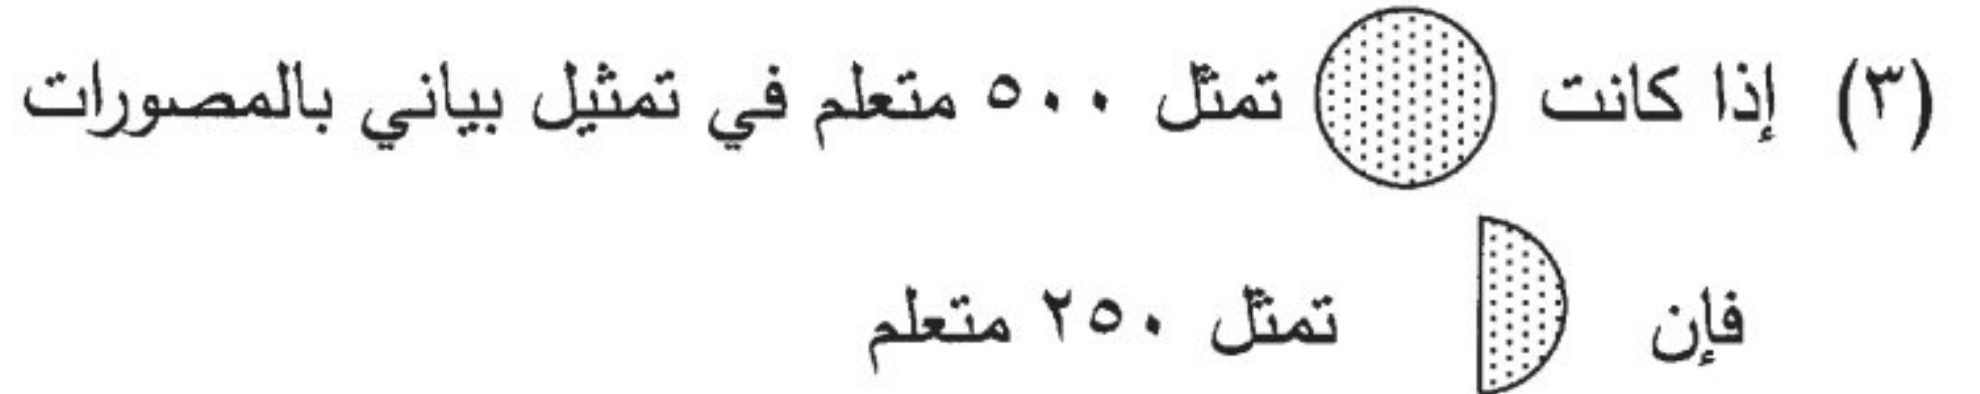 (٣) إذا كانت تمثل ٥٠٠ متعلم في تمثيل بياني بالمصورات
فإن تمثل ٢٥٠ متعلم